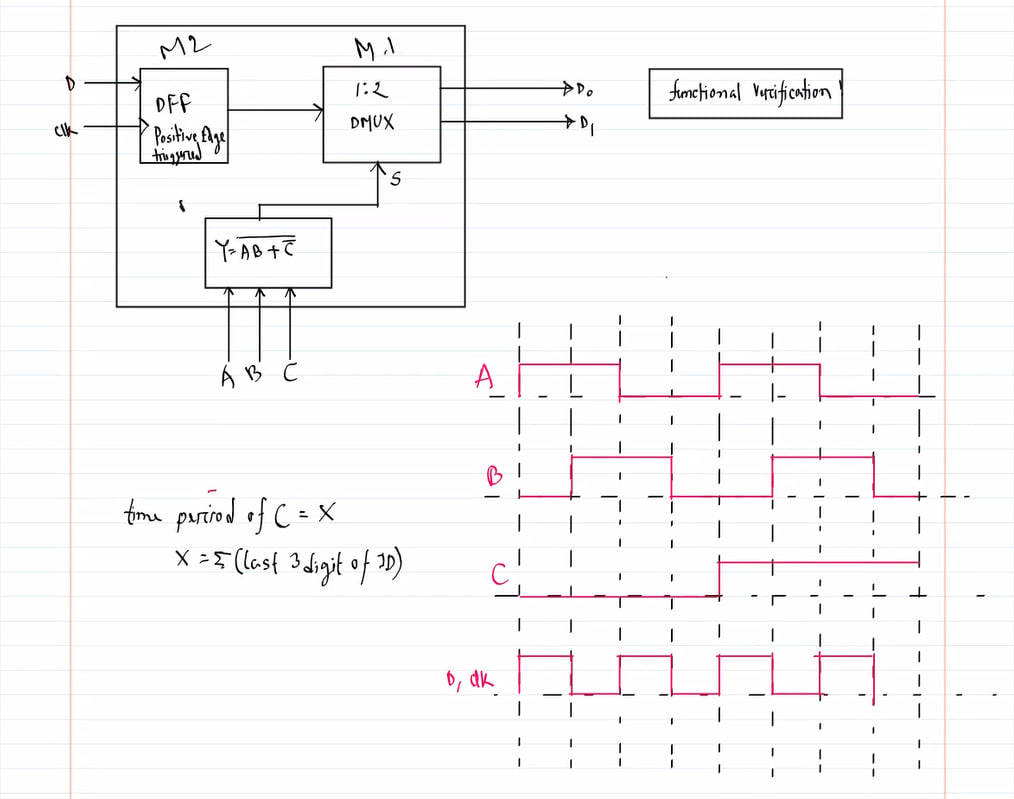 M2
M.1
D
Clk
DFF
Positive Edge
triggered
1:2
DMUX
D₀
D₁
functional Verification
S
Y = \overline{AB + \overline{C}}
A B C
A
B
time period of C = X
X = Σ (last 3 digit of ID)
C
D, clk